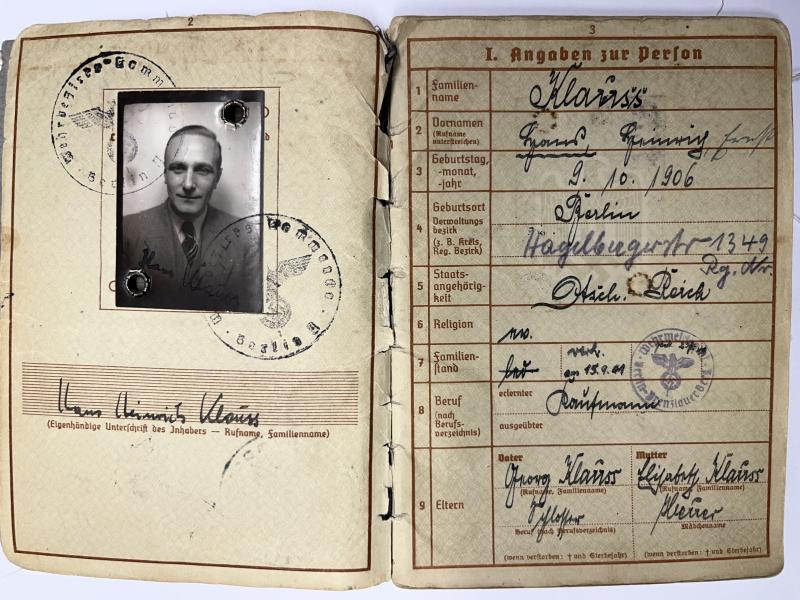 2
Hans Klauss
Berlin
Hans Heinrich Klauss
(Eigenhändige Unterschrift des Inhabers — Rufname, Familienname)
3
I. Angaben zur Person
1 Familien-
name Klauss
2 Vornamen
(Rufname
unterstreichen) Hans, Heinrich, Ernst
3 Geburtstag,
-monat,
-jahr 9. 10. 1906
4 Geburtsort Berlin
Verwaltungs-
bezirk
(z. B. Kreis,
Reg. Bezirk) Hagelbergerstr 1349
Rg. Nr.
5 Staats-
angehörig-
keit Dtsch. Reich
6 Religion ev.
7 Familien-
stand led verh.
am 15.9.41
8 Beruf
(nach
Berufs-
verzeichnis) erlernter
Kaufmann
ausgeübter
9 Eltern
Vater Mutter
Georg Klauss Elisabeth Klauss
(Rufname, Familienname) (Rufname, Familienname)
Schlosser
Beruf (nach Berufsverzeichnis) Mädchenname
(wenn verstorben: † und Sterbejahr) (wenn verstorben: † und Sterbejahr)